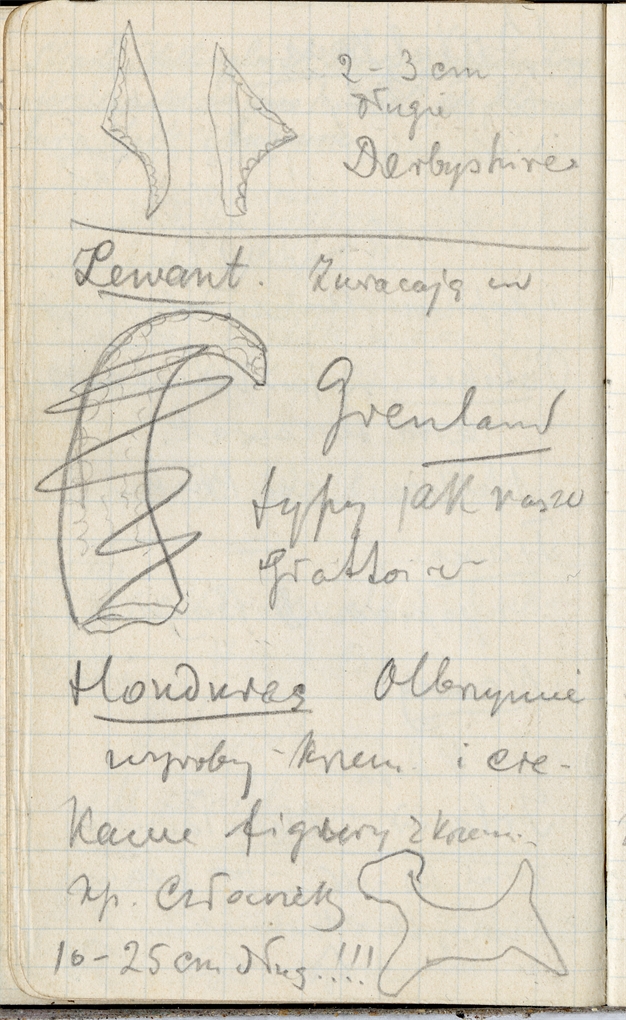 2 - 3 cm
długie
Derbyshire
Lewant. Zwracają uw
Grenland
typy jak nasze
Grattoir
Honduras Olbrzymie
wyroby krzem. i cie-
kawe figury z krzem.
np. Człowiek
10 - 25 cm dług.!!!